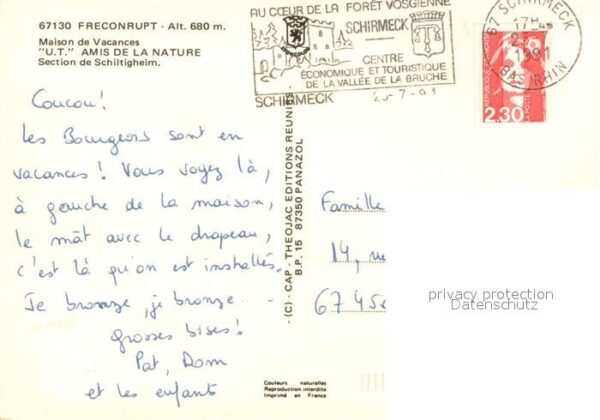 67130 FRECONRUPT - Alt. 680 m.
Maison de Vacances
"U.T." AMIS DE LA NATURE
Section de Schiltigheim.
Coucou!
Les Bourgeois sont en
vacances! Vous voyez là,
à gauche de la maison,
le mât avec le drapeau,
c'est là qu'on est installés.
Je bronze, je bronze....
grosses bises!
Pat, Dom
et les enfants
AU CŒUR DE LA FORÊT VOSGIENNE
SCHIRMECK
CENTRE
ÉCONOMIQUE ET TOURISTIQUE
DE LA VALLÉE DE LA BRUCHE
SCHIRMECK 25-7-91
67 SCHIRMECK
17H45
1991
BAS RHIN
REPUBLIQUE FRANÇAISE
LA POSTE
2,30
- (C) - CAP - THEOJAC EDITIONS REUNIES -
B.P. 15 87350 PANAZOL
Famille
14, rue
6745
privacy protection
Datenschutz
Couleurs naturelles
Reproduction interdite
Imprimé en France